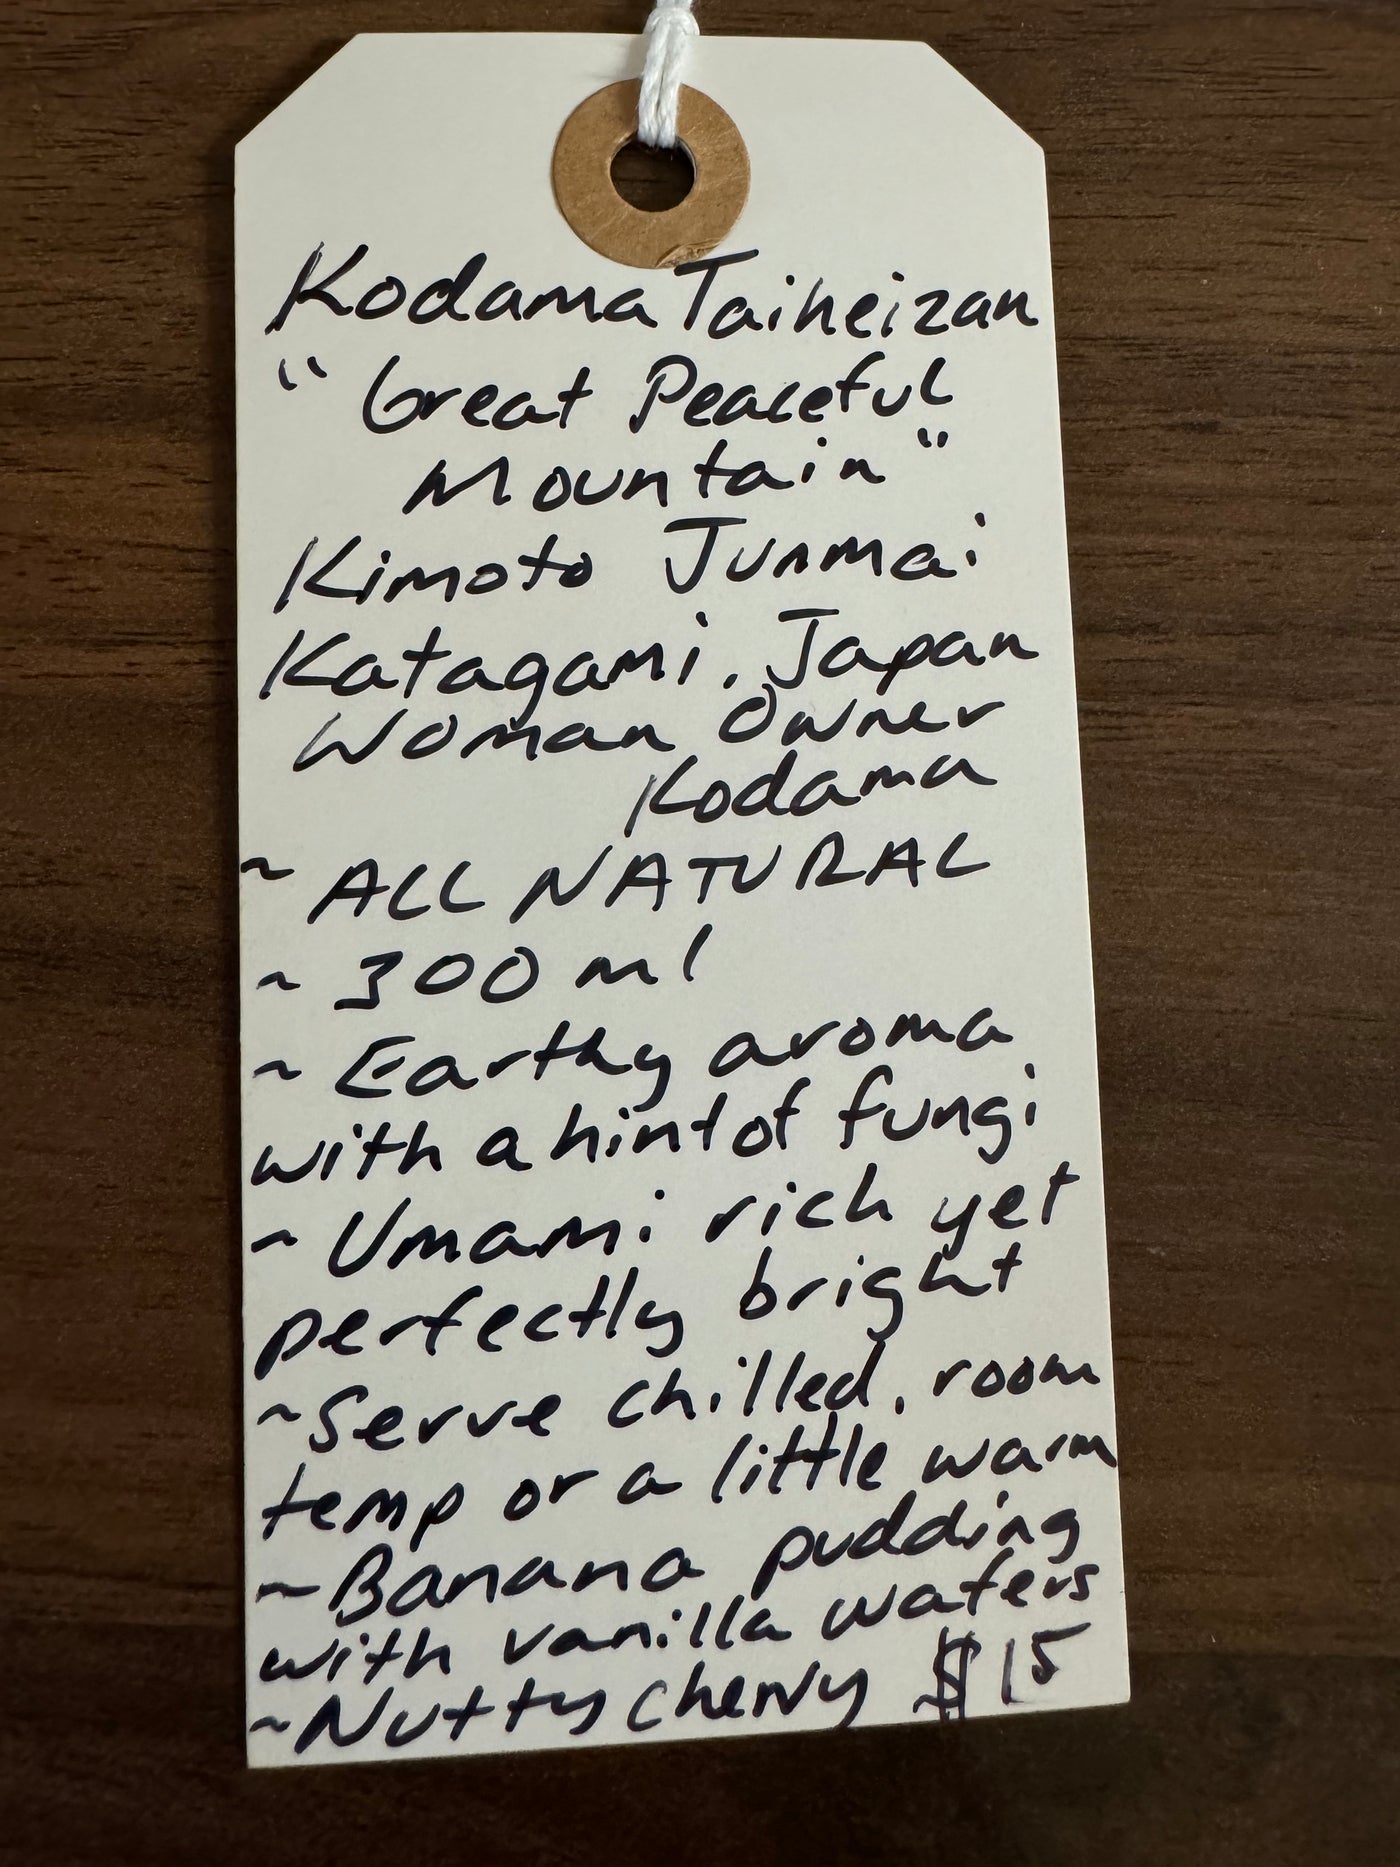 Kodama Taiheizan
"Great Peaceful
Mountain"
Kimoto Junmai
Katagami, Japan
Woman Owner
Kodama
~ ALL NATURAL
~ 300 ml
~ Earthy aroma
with a hint of fungi
~ Umami rich yet
perfectly bright
~Serve chilled, room
temp or a little warm
~Banana pudding
with vanilla wafers
~Nutty cherry ~$15